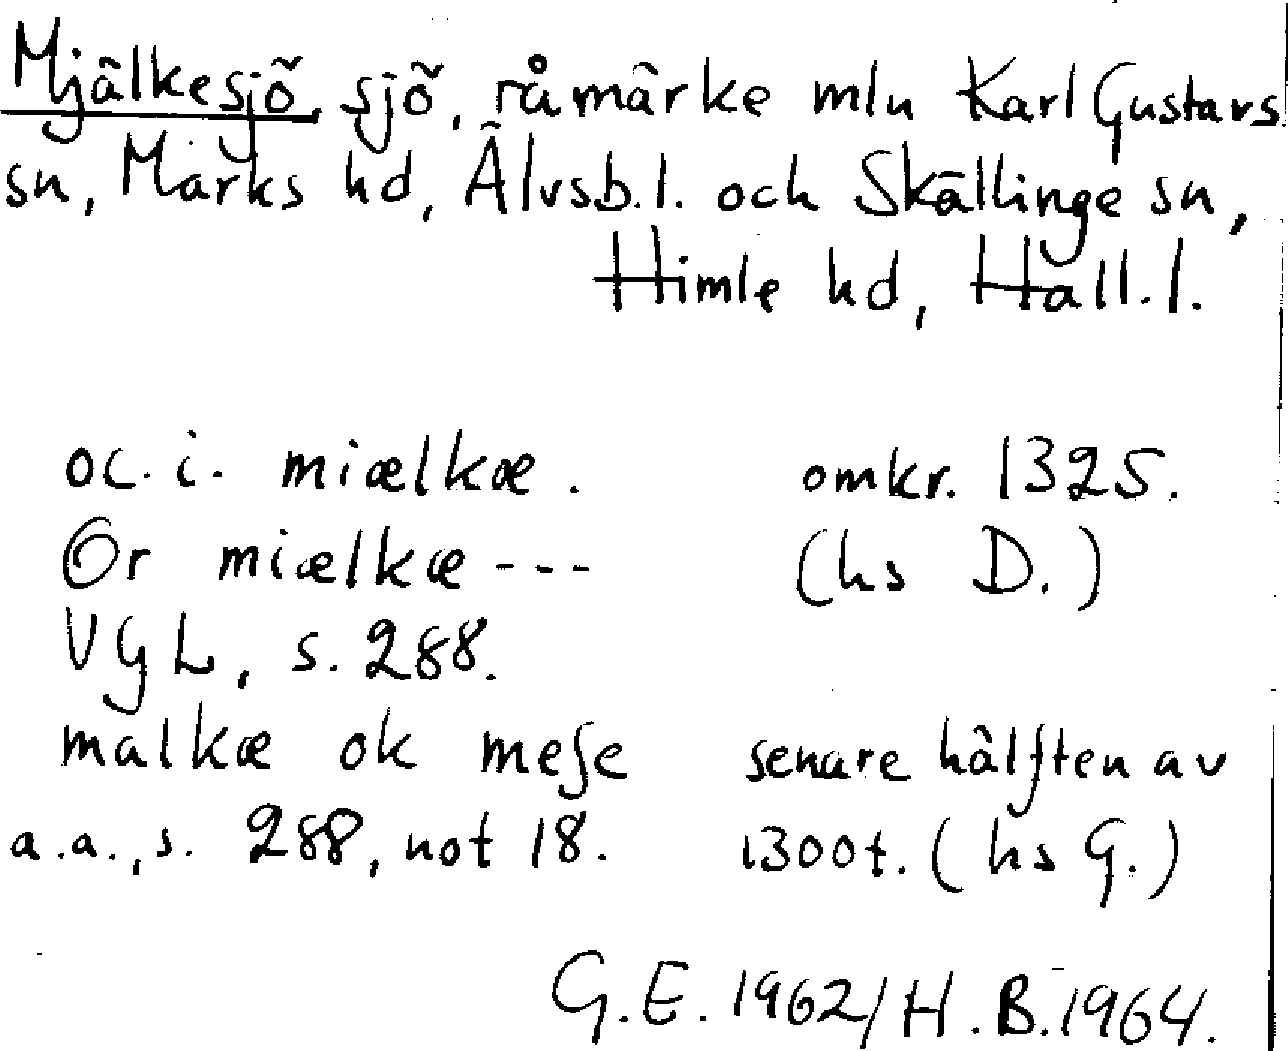 Mjälkesjö, sjö, råmärke mln Karl Gustavs
sn, Marks hd, Älvsb.l. och Skällinge sn,
Himle hd, Hall.l.
oc. i. miælkæ. omkr. 1325.
Or miælkæ --- (hs D.)
VGL, s. 288.
malkæ ok mese senare hälften av
a.a., s. 288, not 18. 1300t. (hs G.)
G.E. 1962/H.B. 1964.